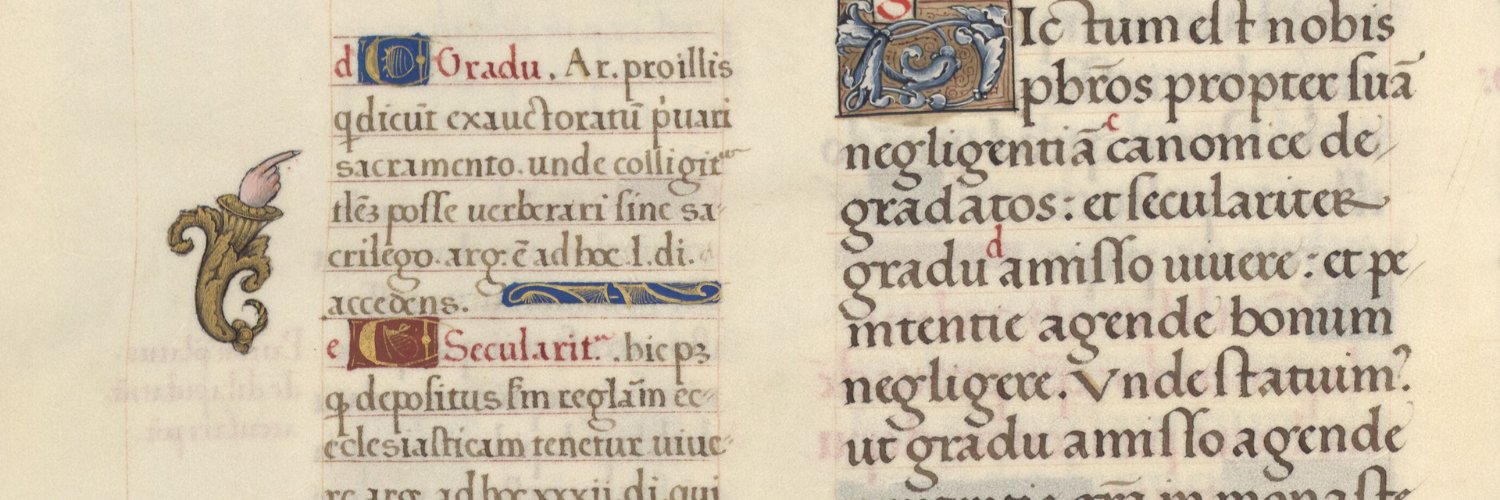 d Gradu. Ar. pro illis
q̢ dicūt exauctoratū p̲uari
sacramento. unde colligit᷑
tlēʒ posse uerberari sine sa-
crilego. arg. ē ad hoc .l. di.
accedens.
e Secularit. hic pʒ
q̢ depositus sm regłam ec-
clesiasticam tenetur uiue-
re arg. ad hoc xxxii di. qui
DIctum est nobis
pbros propter suā
negligentiā c canonice de-
gradatos: et seculariter
gradu d amisso uiuere: et pe
nitentie agende bonum
negligere. Vnde statuim᷒.
ut gradu amisso agende
in monaste